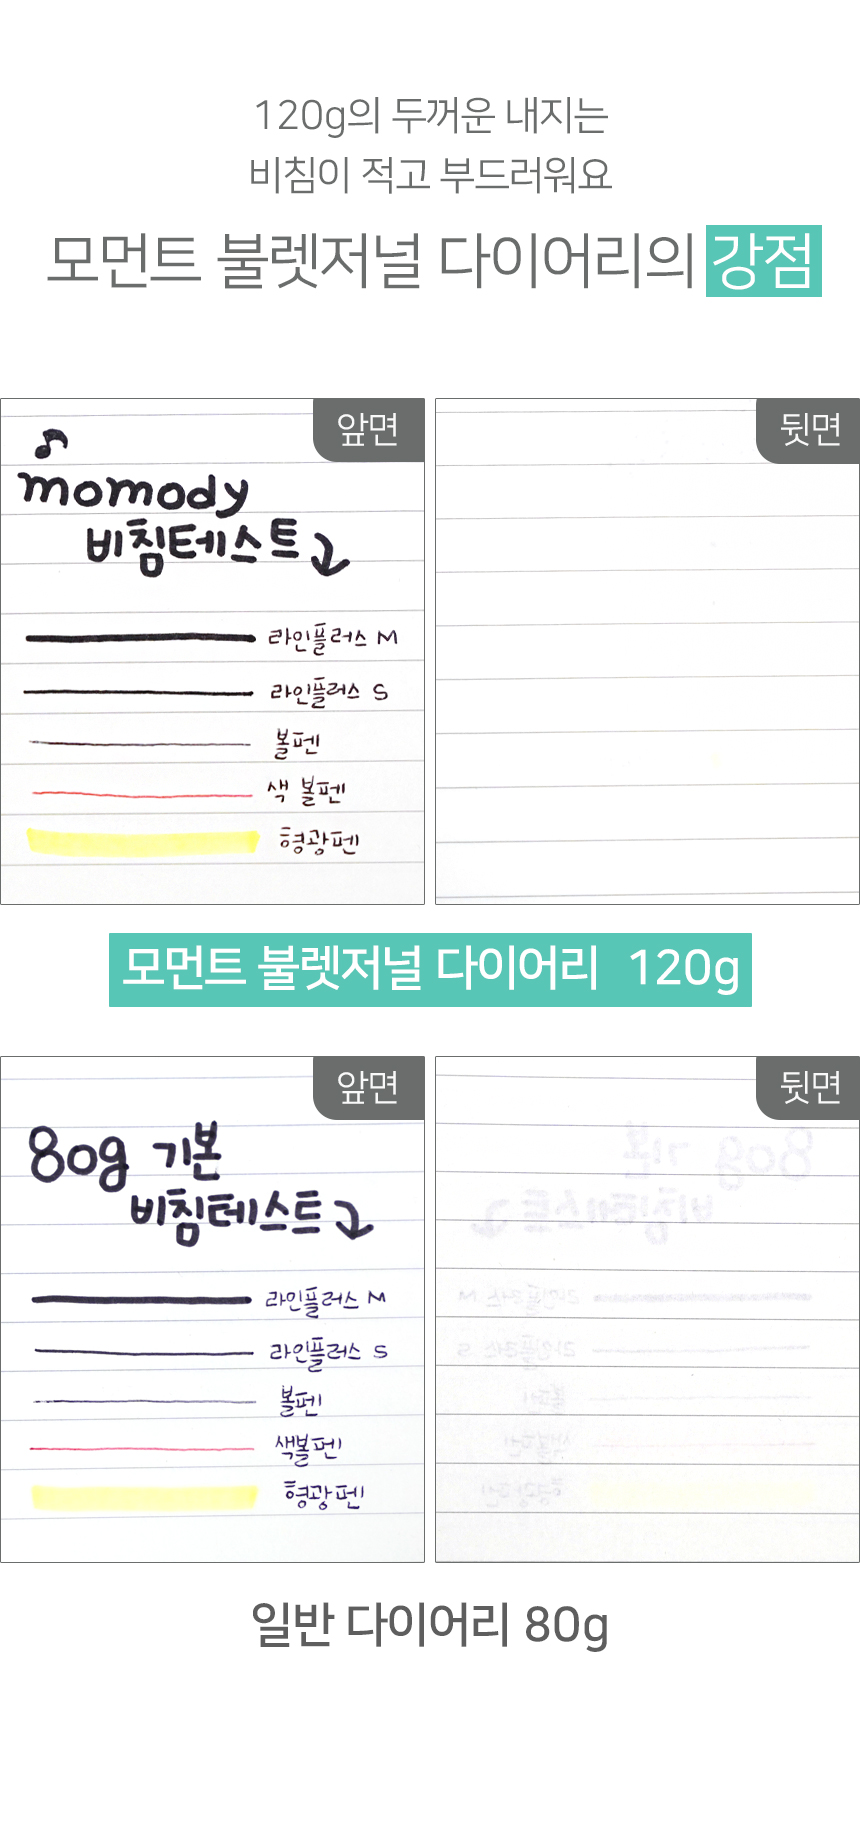 120g의 두꺼운 내지는
비침이 적고 부드러워요
모먼트 불렛저널 다이어리의 강점
앞면
momody
비침테스트
라인플러스 M
라인플러스 S
볼펜
색 볼펜
형광펜
뒷면
모먼트 불렛저널 다이어리 120g
앞면
80g 기본
비침테스트
라인플러스 M
라인플러스 S
볼펜
색볼펜
형광펜
뒷면
80g 기본
비침테스트
라인플러스 M
라인플러스 S
볼펜
색볼펜
형광펜
일반 다이어리 80g